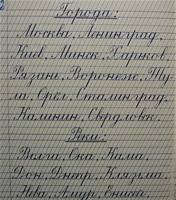 Города:
Москва, Ленинград,
Киев, Минск, Харьков,
Рязань, Воронеж, Ту-
ла, Орёл, Сталинград,
Калинин, Свердловск.
Реки:
Волга, Ока, Кама,
Дон, Днепр, Клязьма,
Нева, Амур, Енисей.